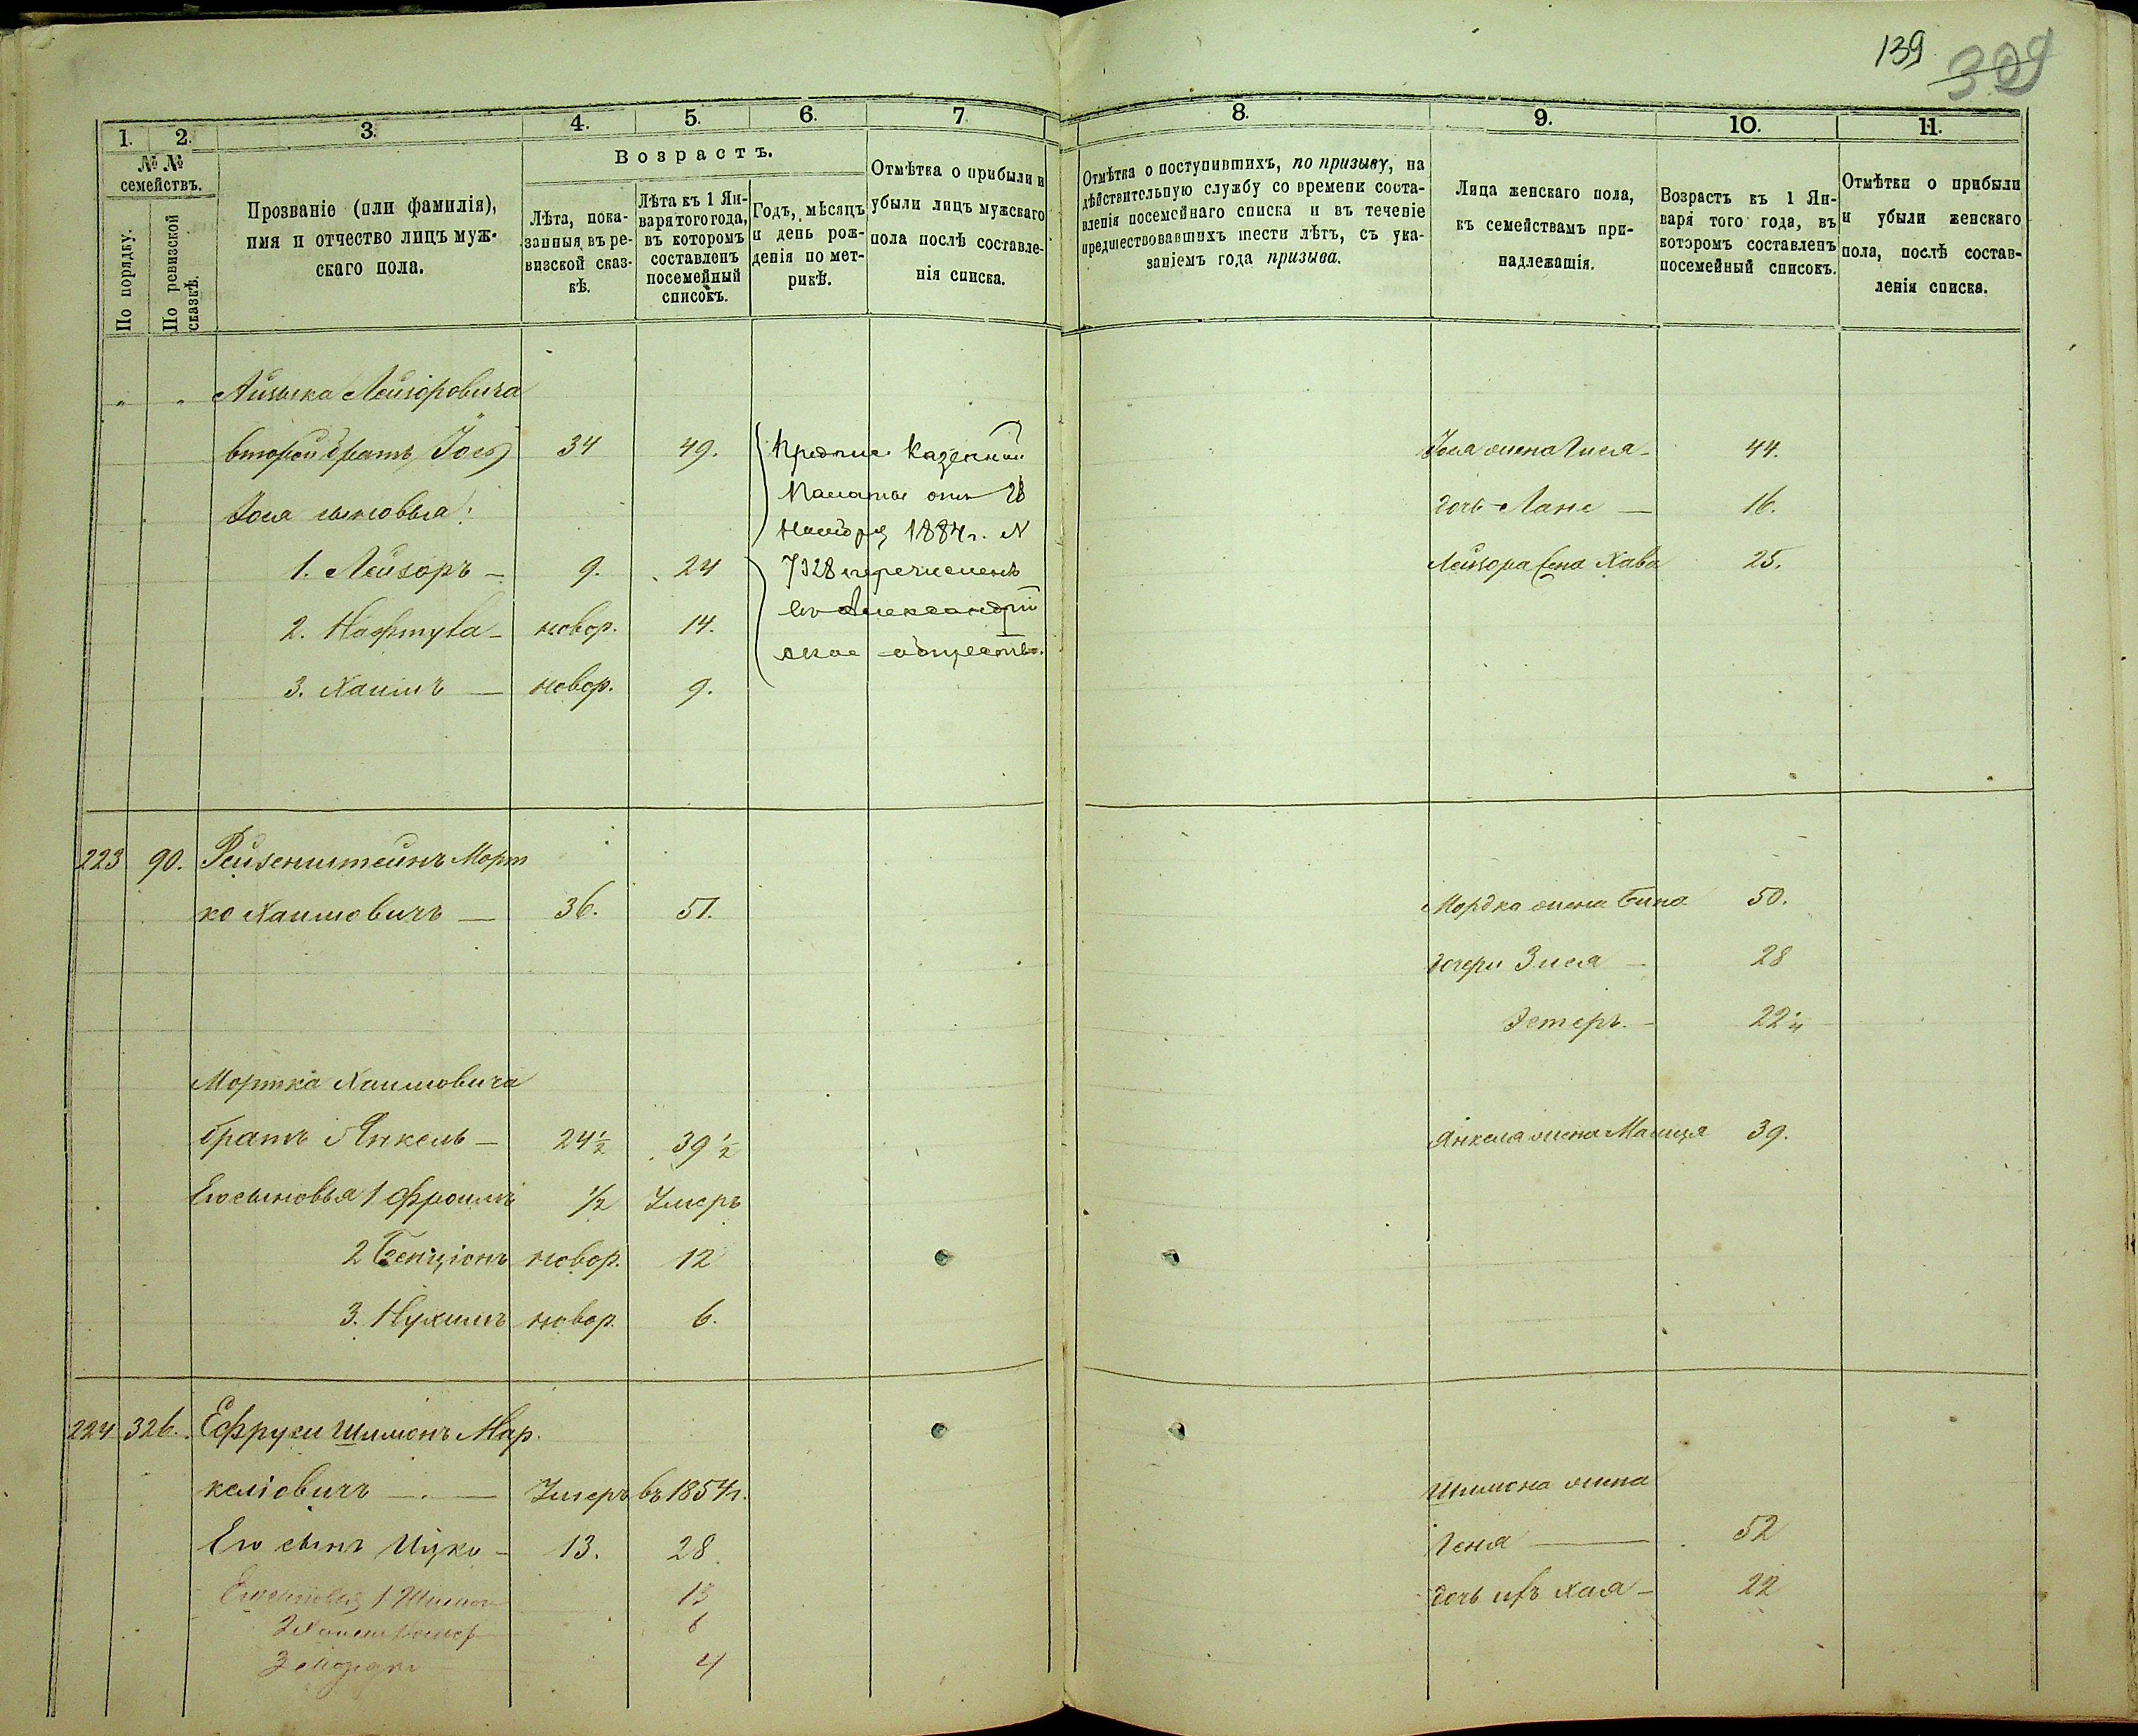 139
329
1.
2.
3.
4.
5.
6.
7
8.
9.
10.
11.
№ №
семействъ.
По порядку.
По ревизской сказкѣ.
Прозваніе (или фамилія),
имя и отчество лицъ муж-
скаго пола.
Возрастъ.
Лѣта, пока-
занныя въ ре-
визской сказ-
кѣ.
Лѣта къ 1 Ян-
варя того года,
въ которомъ
составленъ
посемейный
списокъ.
Годъ, мѣсяцъ
и день рож-
денія по мет-
рикѣ.
Отмѣтка о прибыли и
убыли лицъ мужскаго
пола послѣ составле-
нія списка.
Отмѣтка о поступившихъ, по призыву, на
дѣйствительную службу со времени соста-
вленія посемейнаго списка и въ теченіе
предшествовавшихъ шести лѣтъ, съ ука-
заніемъ года призыва.
Лица женскаго пола,
къ семействамъ при-
надлежащія.
Возрастъ къ 1 Ян-
варя того года, въ
которомъ составленъ
посемейный списокъ.
Отмѣтки о прибыли
и убыли женскаго
пола, послѣ состав-
ленія списка.
" " Айзыка Лейзоровича
второй братъ Іось 34 49.
Іося сыновья:
1. Лейзоръ — 9. 24
2. Нафтула — новор. 14.
3. Хаимъ — новор. 9.
Предпис. Казенной
Палаты отъ 28
Ноября 1884 г. №
7328 перечисленъ
въ Александрій
ское общество.
Іося жена Гися — 44.
дочь Лане — 16.
Лейзора жена Хава 25.
223 90. Рейзенштейнъ Морт
ко Хаимовичъ — 36. 51.
Мордка жена Бина 50.
дочери Зися — 28
Эстеръ. — 22 ½
Мортка Хаимовича
братъ Янкель — 24 ½ 39 ½
Янкеля жена Малця 39.
Его сыновья 1 Фроимъ ½ Умеръ
2 Бенціонъ новор. 12
3. Нухимъ новор. 6.
224 326. Ефруси Шимонъ Мар.
келіовичъ — Умеръ въ 1854 г.
Его сынъ Ицко — 13. 28.
Его сыновья 1 Шимон 13
2 Хаим 6
3 Мордко 4
Шимона жена
Геня — 52
дочь ихъ Хая — 22